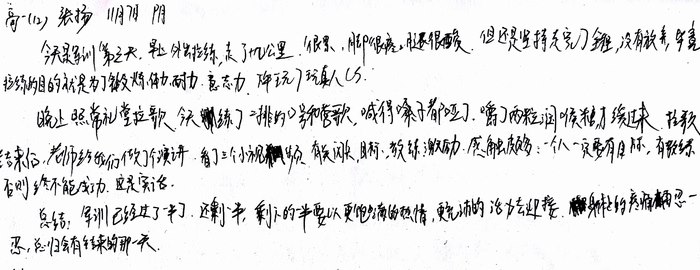 高一(12) 张扬 11月7日 阴
今天是军训第三天,早上外出拉练,走了十几公里,很累,脚很疼,腿很酸,但还是坚持走完了全程,没有放弃,毕竟
拉练的目的就是为了锻炼体力,耐力,意志力,
晚上照常礼堂拉歌,今天练了二排的口号和营歌,喊得嗓子都哑了,嚼了两粒润喉糖才缓过来,拉歌
结束后,老师给我们做了个演讲,看了三个小视频,有关团队,目标,教练激励,感触良多:一个人一定要有目标,有教练
否则终不能成功,这是实话。
总结:军训已经过了一半了,还剩一半,剩下的一半要以更饱满的热情,更充沛的活力去迎接,身体上的疼痛忍一
忍,总归会有结束的那一天。